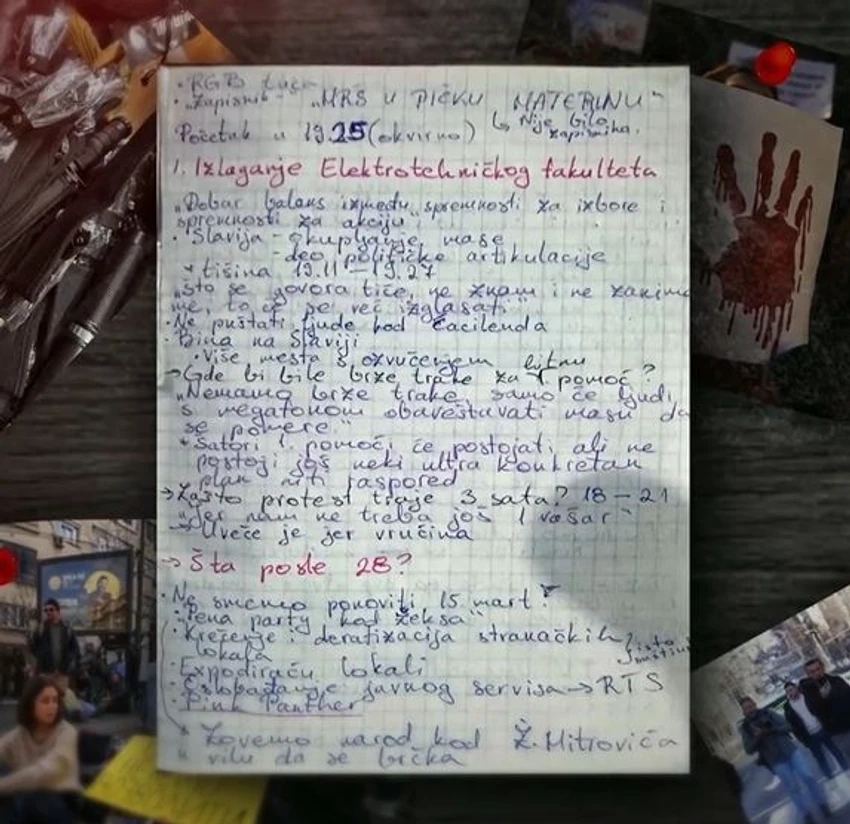 · RGB
· „Zapisnik" - „MRŠ U PIČKU MATERINU"
Početak u 19.25 (okvirno) ↳ Nije bilo
zapisnika.
1. Izlaganje Elektrotehničkog fakulteta
„Dobar balans između spremnosti za izbore i
spremnosti za akciju"
· Slavija - okupljanje mase
- deo političke artikulacije
* tišina 19.11 - 19.27
„Što se govora tiče, ne znam i ne zanima
me, to će se već izglasati"
· Ne puštati ljude kod Ćacilenda
· Bina na Slaviji
· Više mesta s ozvučenjem bitnu
→ Gde bi bile brze trake za 1. pomoć?
„Nemamo brze trake, samo će ljudi
s megafonom obaveštavati masu da
se pomere."
* Šatori 1. pomoći će postojati, ali ne
postoji još neki ultra konkretan
plan niti raspored
→ Zašto protest traje 3 sata? 18 - 21
„Jer nam ne treba još 1 vašar"
→ Uveče je jer vrućina
→ Šta posle 28?
· Ne smemo ponoviti 15. mart!
· „Pena party kod Žeksa"
· Krečenje i deratizacija stranačkih
lokala
· Expodiraću lokali
· Oslobađanje javnog servisa → RTS
· Pink Panther
* Zovemo narod kod Ž. Mitrovića
u vilu da se brčka